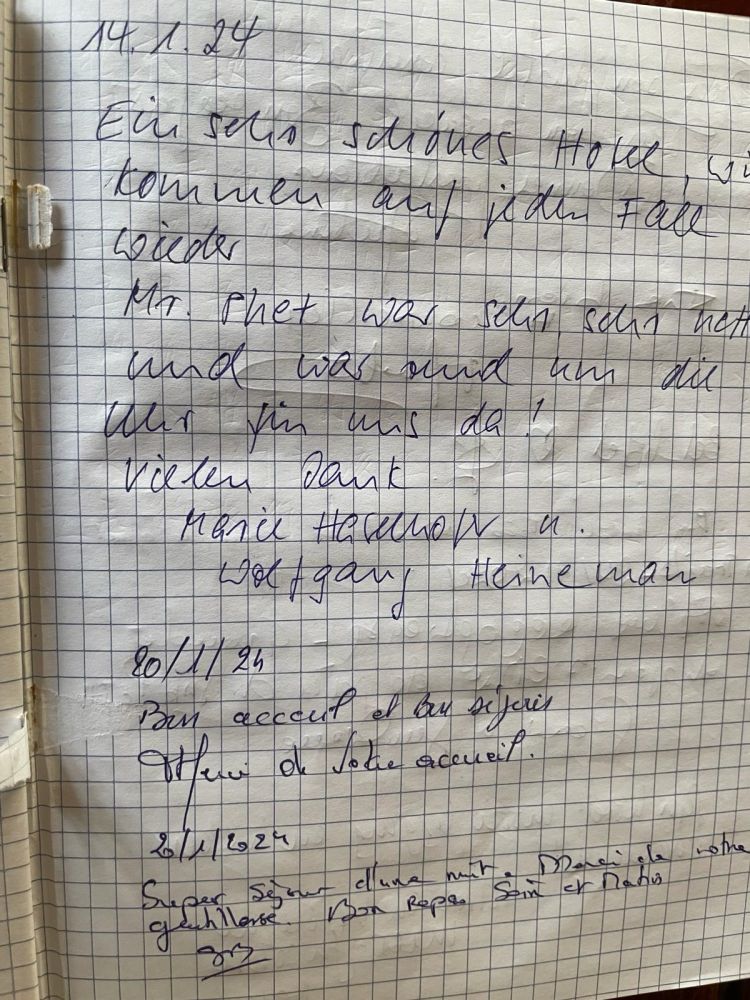 14.1.24
Ein sehr schönes Hotel, wi
kommen auf jeden Fall
wieder
Mr. Phet war sehr, sehr nett
und war rund um die
Uhr für uns da!
Vielen Dank
Marie u.
Wolfgang Heineman
20/1/24
Bon acceuil et bon séjour
Merci de votre accueil.
20/1/2024
Super séjour d'une nuit. Merci de votre
gentillesse. Bon repas Soir et Matin